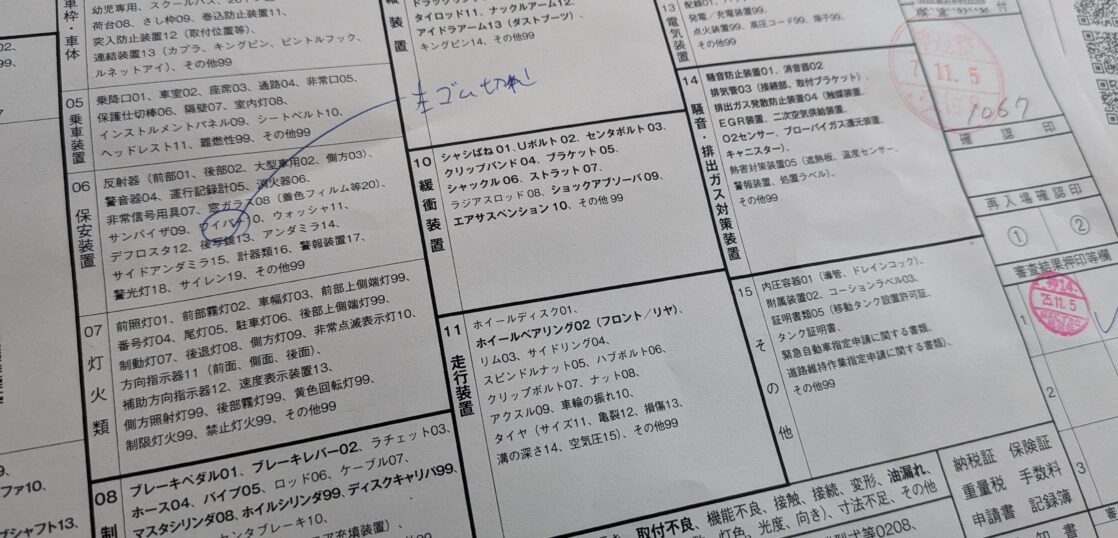 車枠・車体
幼児専用、スクールバス、
荷台08、さし枠09、巻込防止装置11、
突入防止装置12（取付位置等）、
連結装置13（カプラ、キングピン、ピントルフック、
ルネットアイ）、その他99
05 乗車装置
乗降口01、車室02、座席03、通路04、非常口05、
保護仕切棒06、隔壁07、室内灯08、
インストルメントパネル09、シートベルト10、
ヘッドレスト11、難燃性99、その他99
06 保安装置
反射器（前部01、後部02、大型車用02、側方03）、
警音器04、運行記録計05、消火器06、
非常信号用具07、窓ガラス08（着色フィルム等20）、
サンバイザ09、ワイパ10、ウォッシャ11、
デフロスタ12、後写鏡13、アンダミラ14、
サイドアンダミラ15、計器類16、警報装置17、
警光灯18、サイレン19、その他99
07 灯火類
前照灯01、前部霧灯02、車幅灯03、前部上側端灯99、
番号灯04、尾灯05、駐車灯06、後部上側端灯99、
制動灯07、後退灯08、側方灯09、非常点滅表示灯10、
方向指示器11（前面、側面、後面）、
補助方向指示器12、速度表示装置13、
側方照射灯99、後部霧灯99、黄色回転灯99、
制限灯火99、禁止灯火99、その他99
08 制
ブレーキペダル01、ブレーキレバー02、ラチェット03、
ホース04、パイプ05、ロッド06、ケーブル07、
マスタシリンダ08、ホイルシリンダ99、ディスクキャリパ99、
センタブレーキ10、
ファ10、
プシャフト13、
装置
タイロッド11、ナックルアーム12、
アイドラアーム13（ダストブーツ）、
キングピン14、その他99
ゴム切れ
10 緩衝装置
シャシばね01、Uボルト02、センタボルト03、
クリップバンド04、ブラケット05、
シャックル06、ストラット07、
ラジアスロッド08、ショックアブソーバ09、
エアサスペンション10、その他99
11 走行装置
ホイールディスク01、
ホイールベアリング02（フロント／リヤ）、
リム03、サイドリング04、
スピンドルナット05、ハブボルト06、
クリップボルト07、ナット08、
アクスル09、車輪の振れ10、
タイヤ（サイズ11、亀裂12、損傷13、
溝の深さ14、空気圧15）、その他99
13 電気装置
配線01、
発電／充電装置99、
点火装置99、高圧コード99、端子99、
その他99
14 騒音・排出ガス対策装置
騒音防止装置01、消音器02
排気管03（接続部、取付ブラケット）、
排出ガス発散防止装置04（触媒装置、
EGR装置、二次空気供給装置、
O2センサー、ブローバイガス還元装置、
キャニスター）、
熱害対策装置05（遮熱板、温度センサー、
警報装置、処置ラベル）、
その他99
15 その他
内圧容器01（導管、ドレインコック）、
附属装置02、コーションラベル03、
証明書類05（移動タンク設置許可証、
タンク証明書、
緊急自動車指定申請に関する書類、
道路維持作業指定申請に関する書類）、
その他99
取付不良、機能不良、接触、接続、変形、油漏れ、
灯色、光度、向き）、寸法不足、その他
納税証　保険証
重量税　手数料
申請書　記録簿
7.11.5
9067
確認印
再入場確認印
① ②
審査結果押印等欄
1
25.11.5
2
3